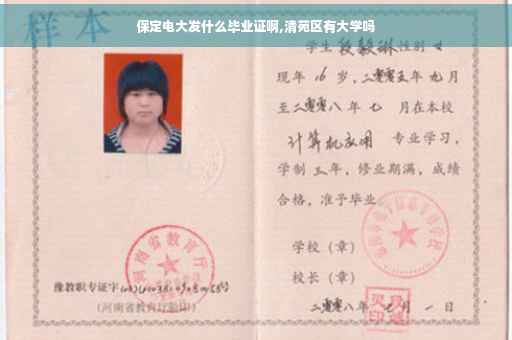 保定电大发什么毕业证啊,清苑区有大学吗
样本
学生 段毅琳 性别 女
现年 16 岁,二零零五年 九 月
至二零零八 年 七 月在本校
计算机应用 专业学习,
学制 三 年,修业期满,成绩
合格,准予毕业
学校(章)
校长(章)
二零零八年 月 一 日
河南省教育厅
豫教职专证字
(河南省教育厅验印)